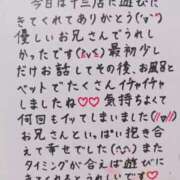 今日は十三店に遊びに
きてくれてありがとう(ˊᵕˋ)
優しいお兄さんでうれし
かったです(ˊᵕˋ)最初少し
だけお話してその後、お風呂と
ベットでたくさんイチャイチャ
しましたね♡♡気持ちよくて
何回もイッてしまいました(〃ω〃)
お兄さんといっぱい抱き合
えて幸せでした(^^)また
タイミングが合えば遊びに
きてくれるとうれしいです♡